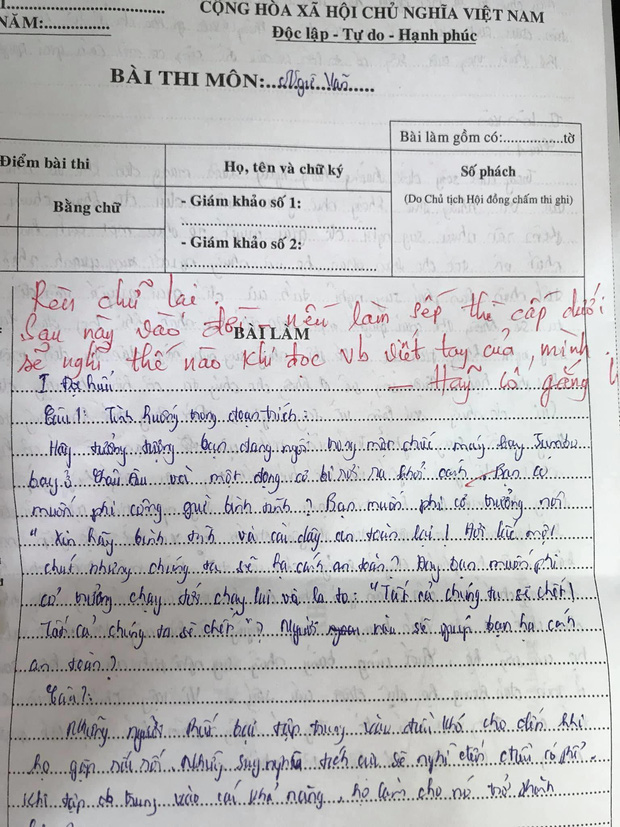 I...............
CỘNG HÒA XÃ HỘI CHỦ NGHĨA VIỆT NAM
NĂM:...............
Độc lập - Tự do - Hạnh phúc
BÀI THI MÔN:..Ngữ Văn.....
Bài làm gồm có:...............tờ
Điểm bài thi
Họ, tên và chữ ký
Số phách
Bằng chữ
- Giám khảo số 1:
(Do Chủ tịch Hội đồng chấm thi ghi)
- Giám khảo số 2:
Rèn chữ lại
Sau này vào đời, nếu làm sếp thì cấp dưới
BÀI LÀM
sẽ nghĩ thế nào khi đọc vb viết tay của mình.
— Hãy cố gắng
I. Đọc hiểu
Câu 1: Tình huống trong đoạn trích:
Hãy tưởng tượng bạn đang ngồi trong một chiếc máy bay Jumbo
bay ở và một động cơ bị rơi ra khỏi cánh. Bạn có
muốn phi công quá bình tĩnh? Bạn muốn phi cơ trưởng nói
"Xin hãy bình tĩnh và cài dây an toàn lại! Hơi một
chút nhưng chúng ta sẽ hạ cánh an toàn? Hay bạn muốn phi
cơ trưởng chạy tới chạy lui và la to: "Tất cả chúng ta sẽ chết!
Tất cả chúng ta sẽ chết"? Người nào sẽ giúp bạn hạ cánh
an toàn?
Câu 2:
Những người thất bại tập trung vào cho đến khi
họ gặp rắc rối. Những suy nghĩ tích cực sẽ nghĩ đến có thể.
Khi tập trung vào cái khả năng, họ làm cho nó trở thành